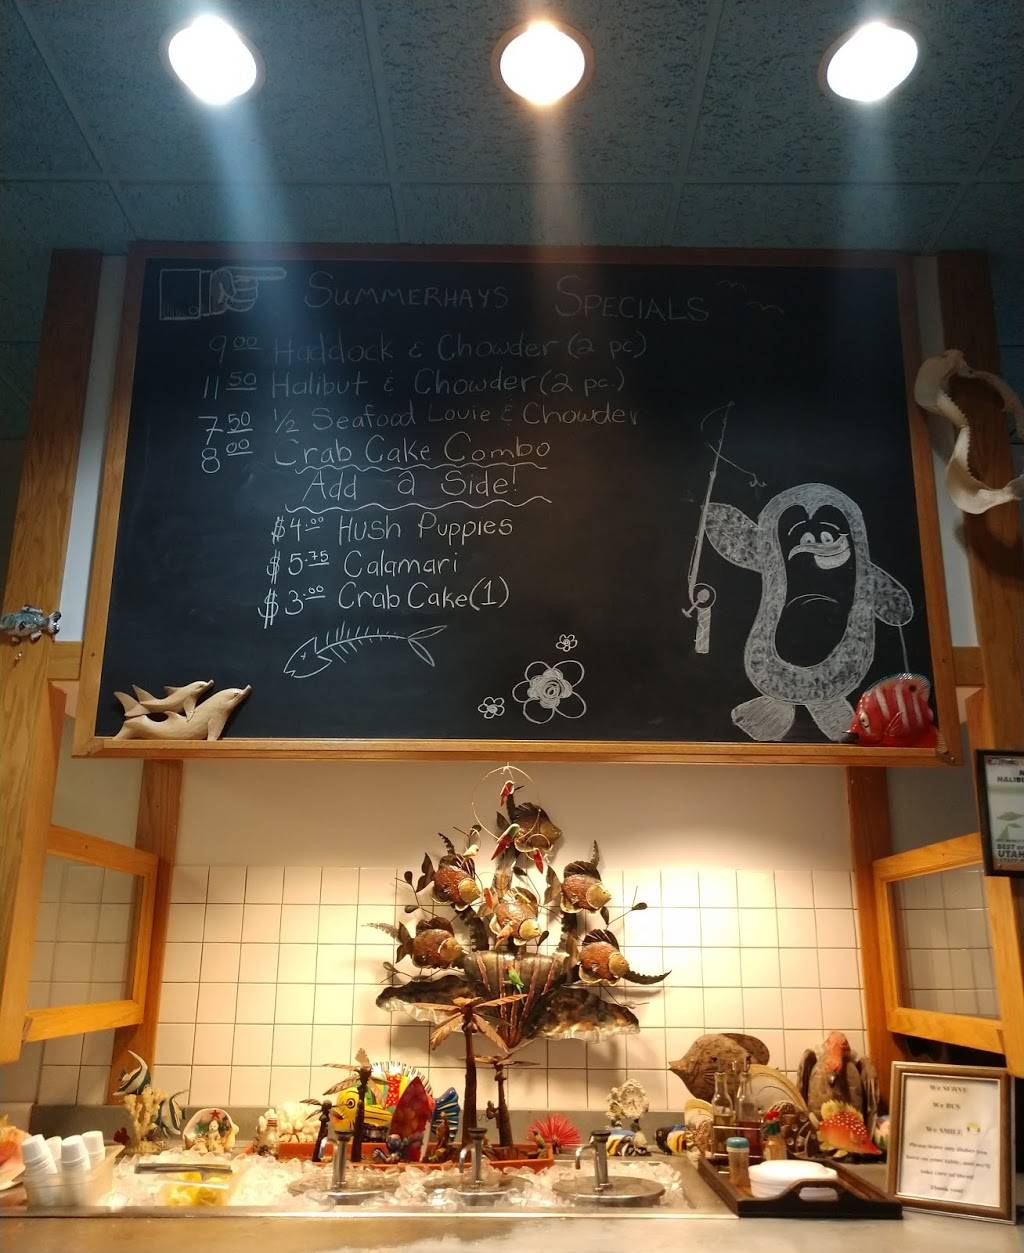 SUMMERHAYS SPECIALS
9.00 Haddock & Chowder (2 pc)
11.50 Halibut & Chowder (2 pc.)
7.50 1/2 Seafood Louie & Chowder
8.00 Crab Cake Combo
Add a Side!
$4.00 Hush Puppies
$5.75 Calamari
$3.00 Crab Cake (1)
HALIBU
BEST OF
UTAH
We SERVE
We BUS
We SMILE
Thank you!